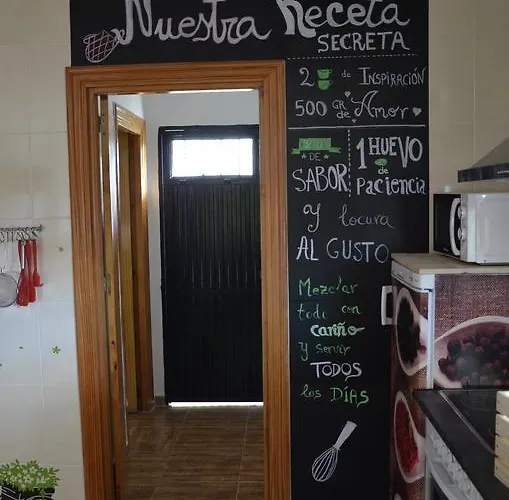 Nuestra Receta
SECRETA
2 de INSPIRACIÓN
500 GR de Amor
DE
SABOR
1 HUEVO
de
Paciencia
y locura
AL GUSTO
Mezclar
todo con
cariño
y servir
TODOS
los DÍAS